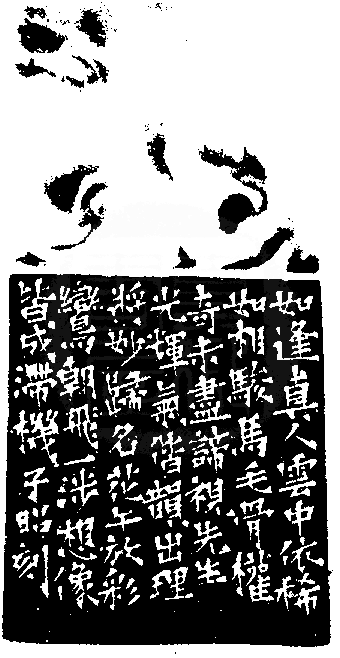 如逢真人雲中依稀
如相駿馬毛骨權
奇未盡諦視先生
光煇氣偕韻出理
將妙歸名花午放彩
鸞朝飛一涉想像
皆成滯機子昭刻